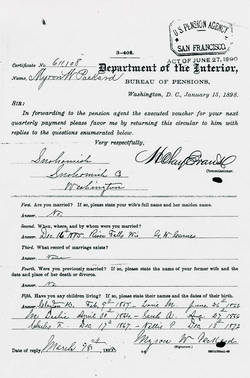 U.S. PENSION AGENCY
SAN FRANCISCO.
3-402.
ACT OF JUNE 27, 1890
Certificate No. 611108
Department of the Interior,
Name, Myron W Packard
BUREAU OF PENSIONS,
Washington, D. C., January 15, 1898.
SIR:
In forwarding to the pension agent the executed voucher for your next
quarterly payment please favor me by returning this circular to him with
replies to the questions enumerated below.
Very respectfully,
Commissioner.
Snohomish
Snohomish Co
Washington
First. Are you married? If so, please state your wife's full name and her maiden name.
Answer. No
Second. When, where, and by whom were you married?
Answer. Dec 16 1875 River Falls Wis
Third. What record of marriage exists?
Answer.
Fourth. Were you previously married? If so, please state the name of your former wife and the
date and place of her death or divorce.
Answer. No
Fifth. Have you any children living? If so, please state their names and the dates of their birth.
Dec 17th 1867 Nellie
Date of reply, March
Myron W Packard
(Signature.)